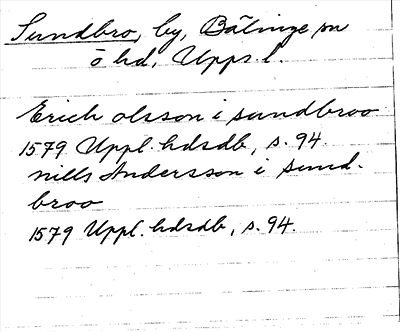 Sundbro, by, Bälinge sn
ö hd, Upps. l.
Erich olsson i sundbroo
1579 Uppl. hdsdb, s. 94.
nills Andersson i sund-
broo
1579 Uppl. hdsdb, s. 94.